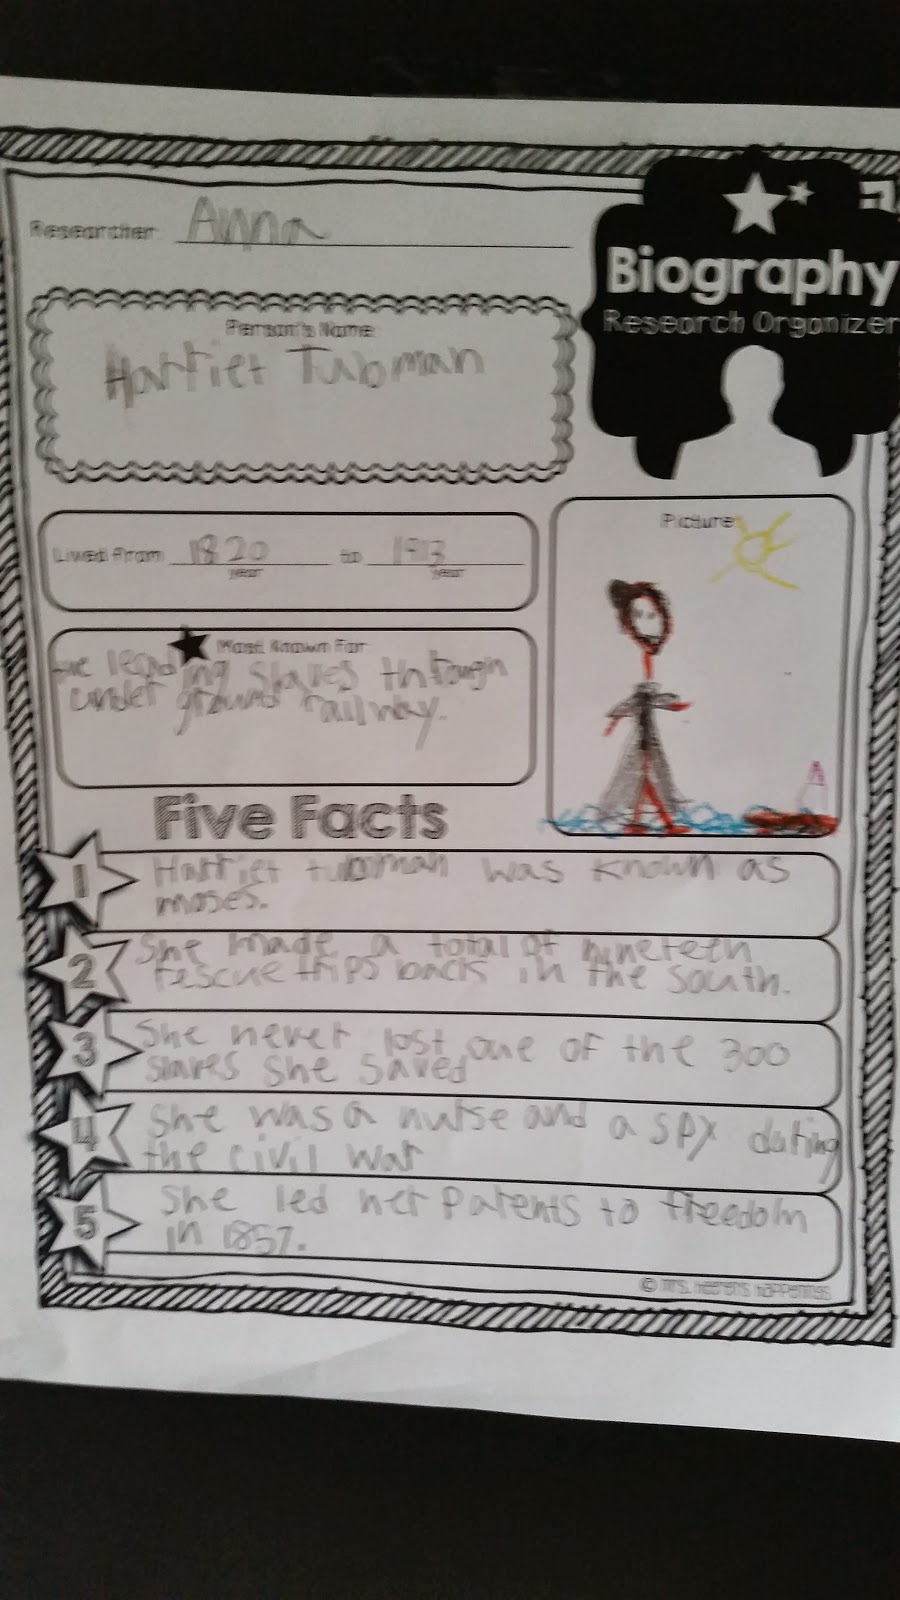 Researcher: Anna
Biography
Research Organizer
Person's Name
Harriet Tubman
Lived from 1820 to 1913
year year
Picture:
Most Known For
leading slaves through
under ground railway.
Five Facts
1 Harriet tubman was known as
moses.
2 She made a total of nineteen
rescue trips back in the south.
3 She never lost one of the 300
slaves she saved
4 She was a nurse and a spy
the civil war
5 She led her parents to freedom
in 1857.